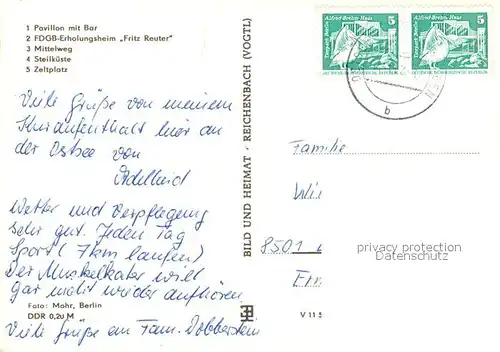 1 Pavillon mit Bar
2 FDGB-Erholungsheim „Fritz Reuter"
3 Mittelweg
4 Steilküste
5 Zeltplatz
Viele Grüße von meinem
Kuraufenthalt hier an
der Ostsee von
Adelheid
Wetter und Verpflegung
sehr gut. Jeden Tag
Sport (7km laufen)
Der Muskelkater will
gar nicht wieder aufhören.
Foto: Mohr, Berlin
DDR 0,20 M
Viele Grüße an Fam. Dobberstein
BILD UND HEIMAT · REICHENBACH (VOGTL)
Alfred-Brehm-Haus 5
Tierpark Berlin
Alfred-Brehm-Haus 5
Tierpark Berlin
b
Familie
8501
privacy protection
Osenberg.com
V 11 5